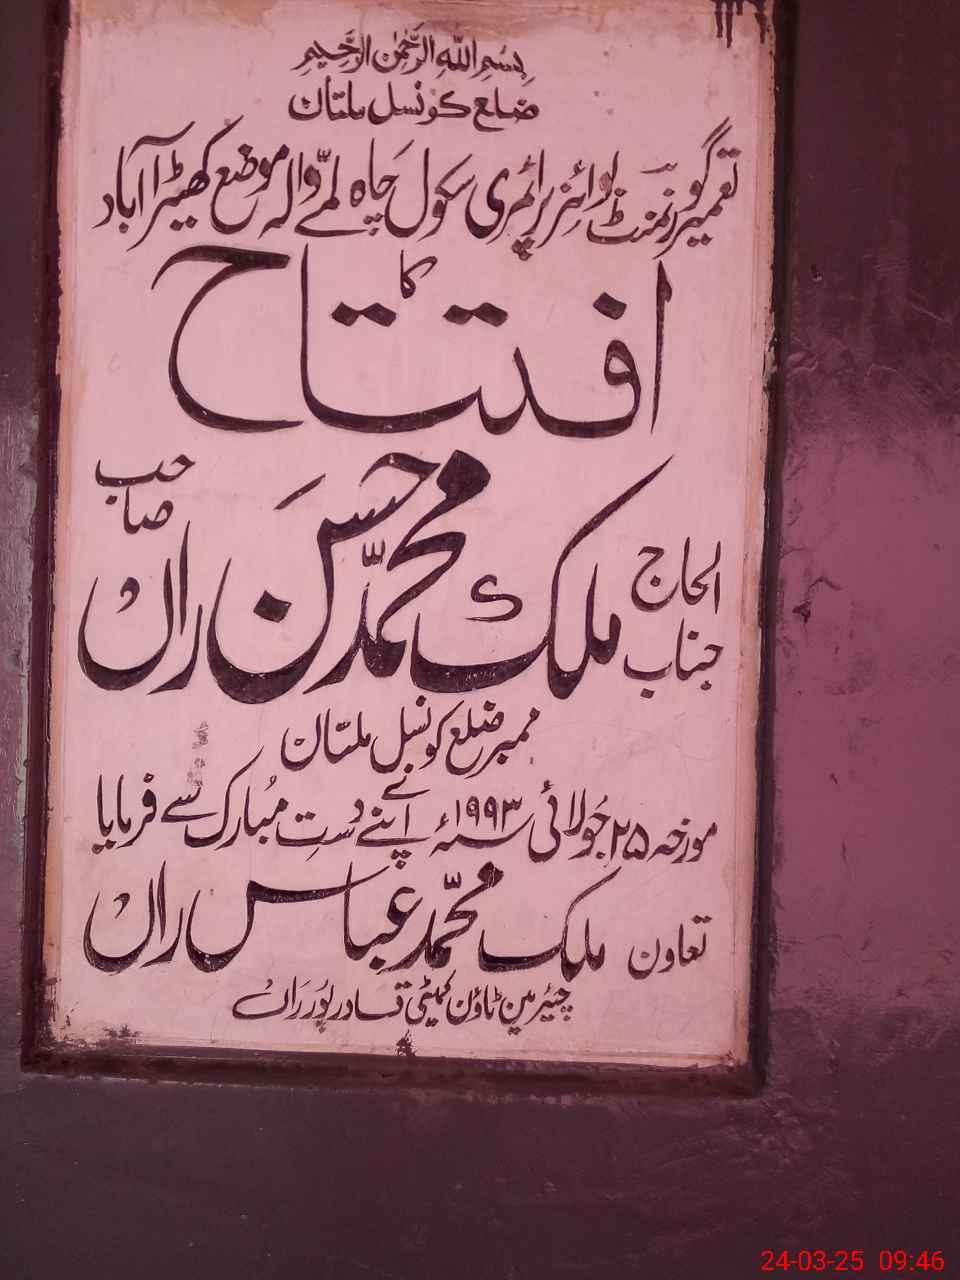 بِسْمِ اللّٰهِ الرَّحْمٰنِ الرَّحِيْمِ
ضلع کونسل ملتان
تعمیر گورنمنٹ بوائز پرائمری سکول چاہ لمّے والہ موضع کھیڑا آباد
کا
افتتاح
الحاج جناب ملک محمّد حسن راں صاحب
ممبر ضلع کونسل ملتان
مورخہ ۲۵ جولائی ۱۹۹۳ء اپنے دستِ مُبارک سے فرمایا
تعاون ملک محمّد عباس راں
چیئرمین ٹاؤن کمیٹی قادرپور راں
24-03-25 09:46